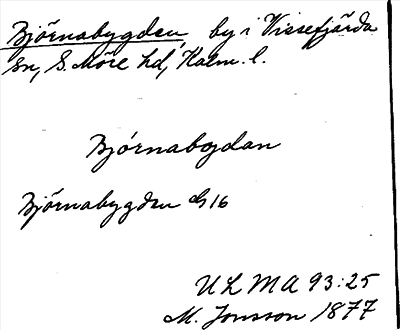 Björnabygden, by i Vissefjärda
sn, S. Möre hd, Kalm. l.
Björnabygdan
Björnabygden G16
ULMA 93:25
M. Jonsson 1877